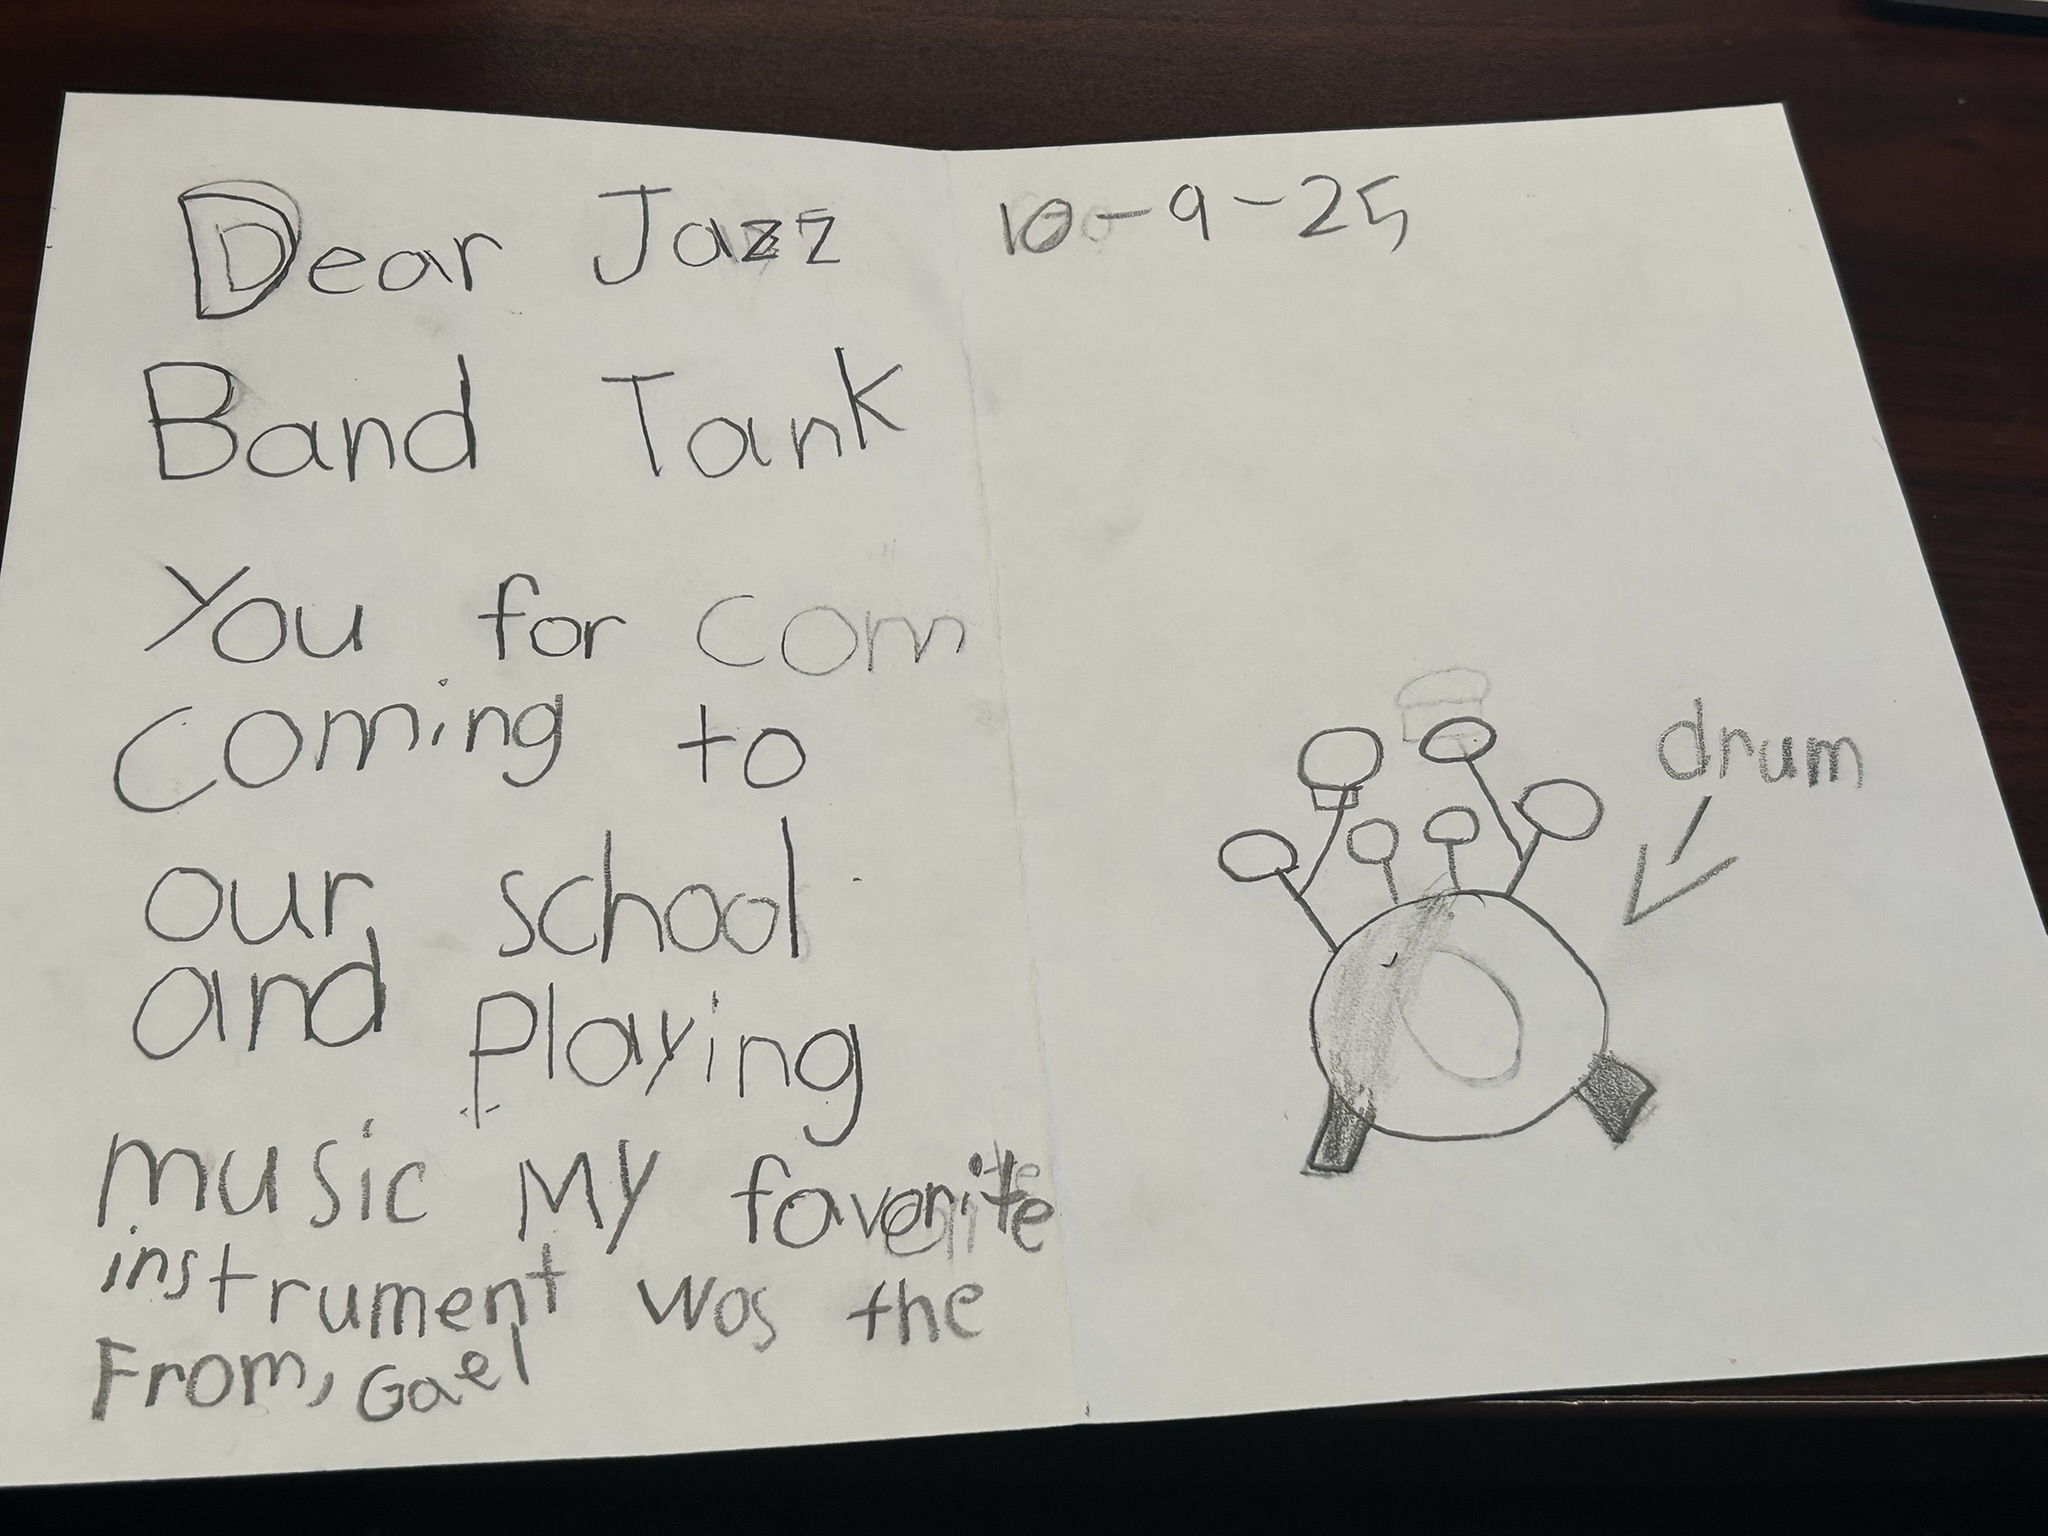 Dear Jazz
Band Tank
You for com
coming to
our school
and Playing
music My favorite
instrument was the
From, Gael
10-9-25
drum